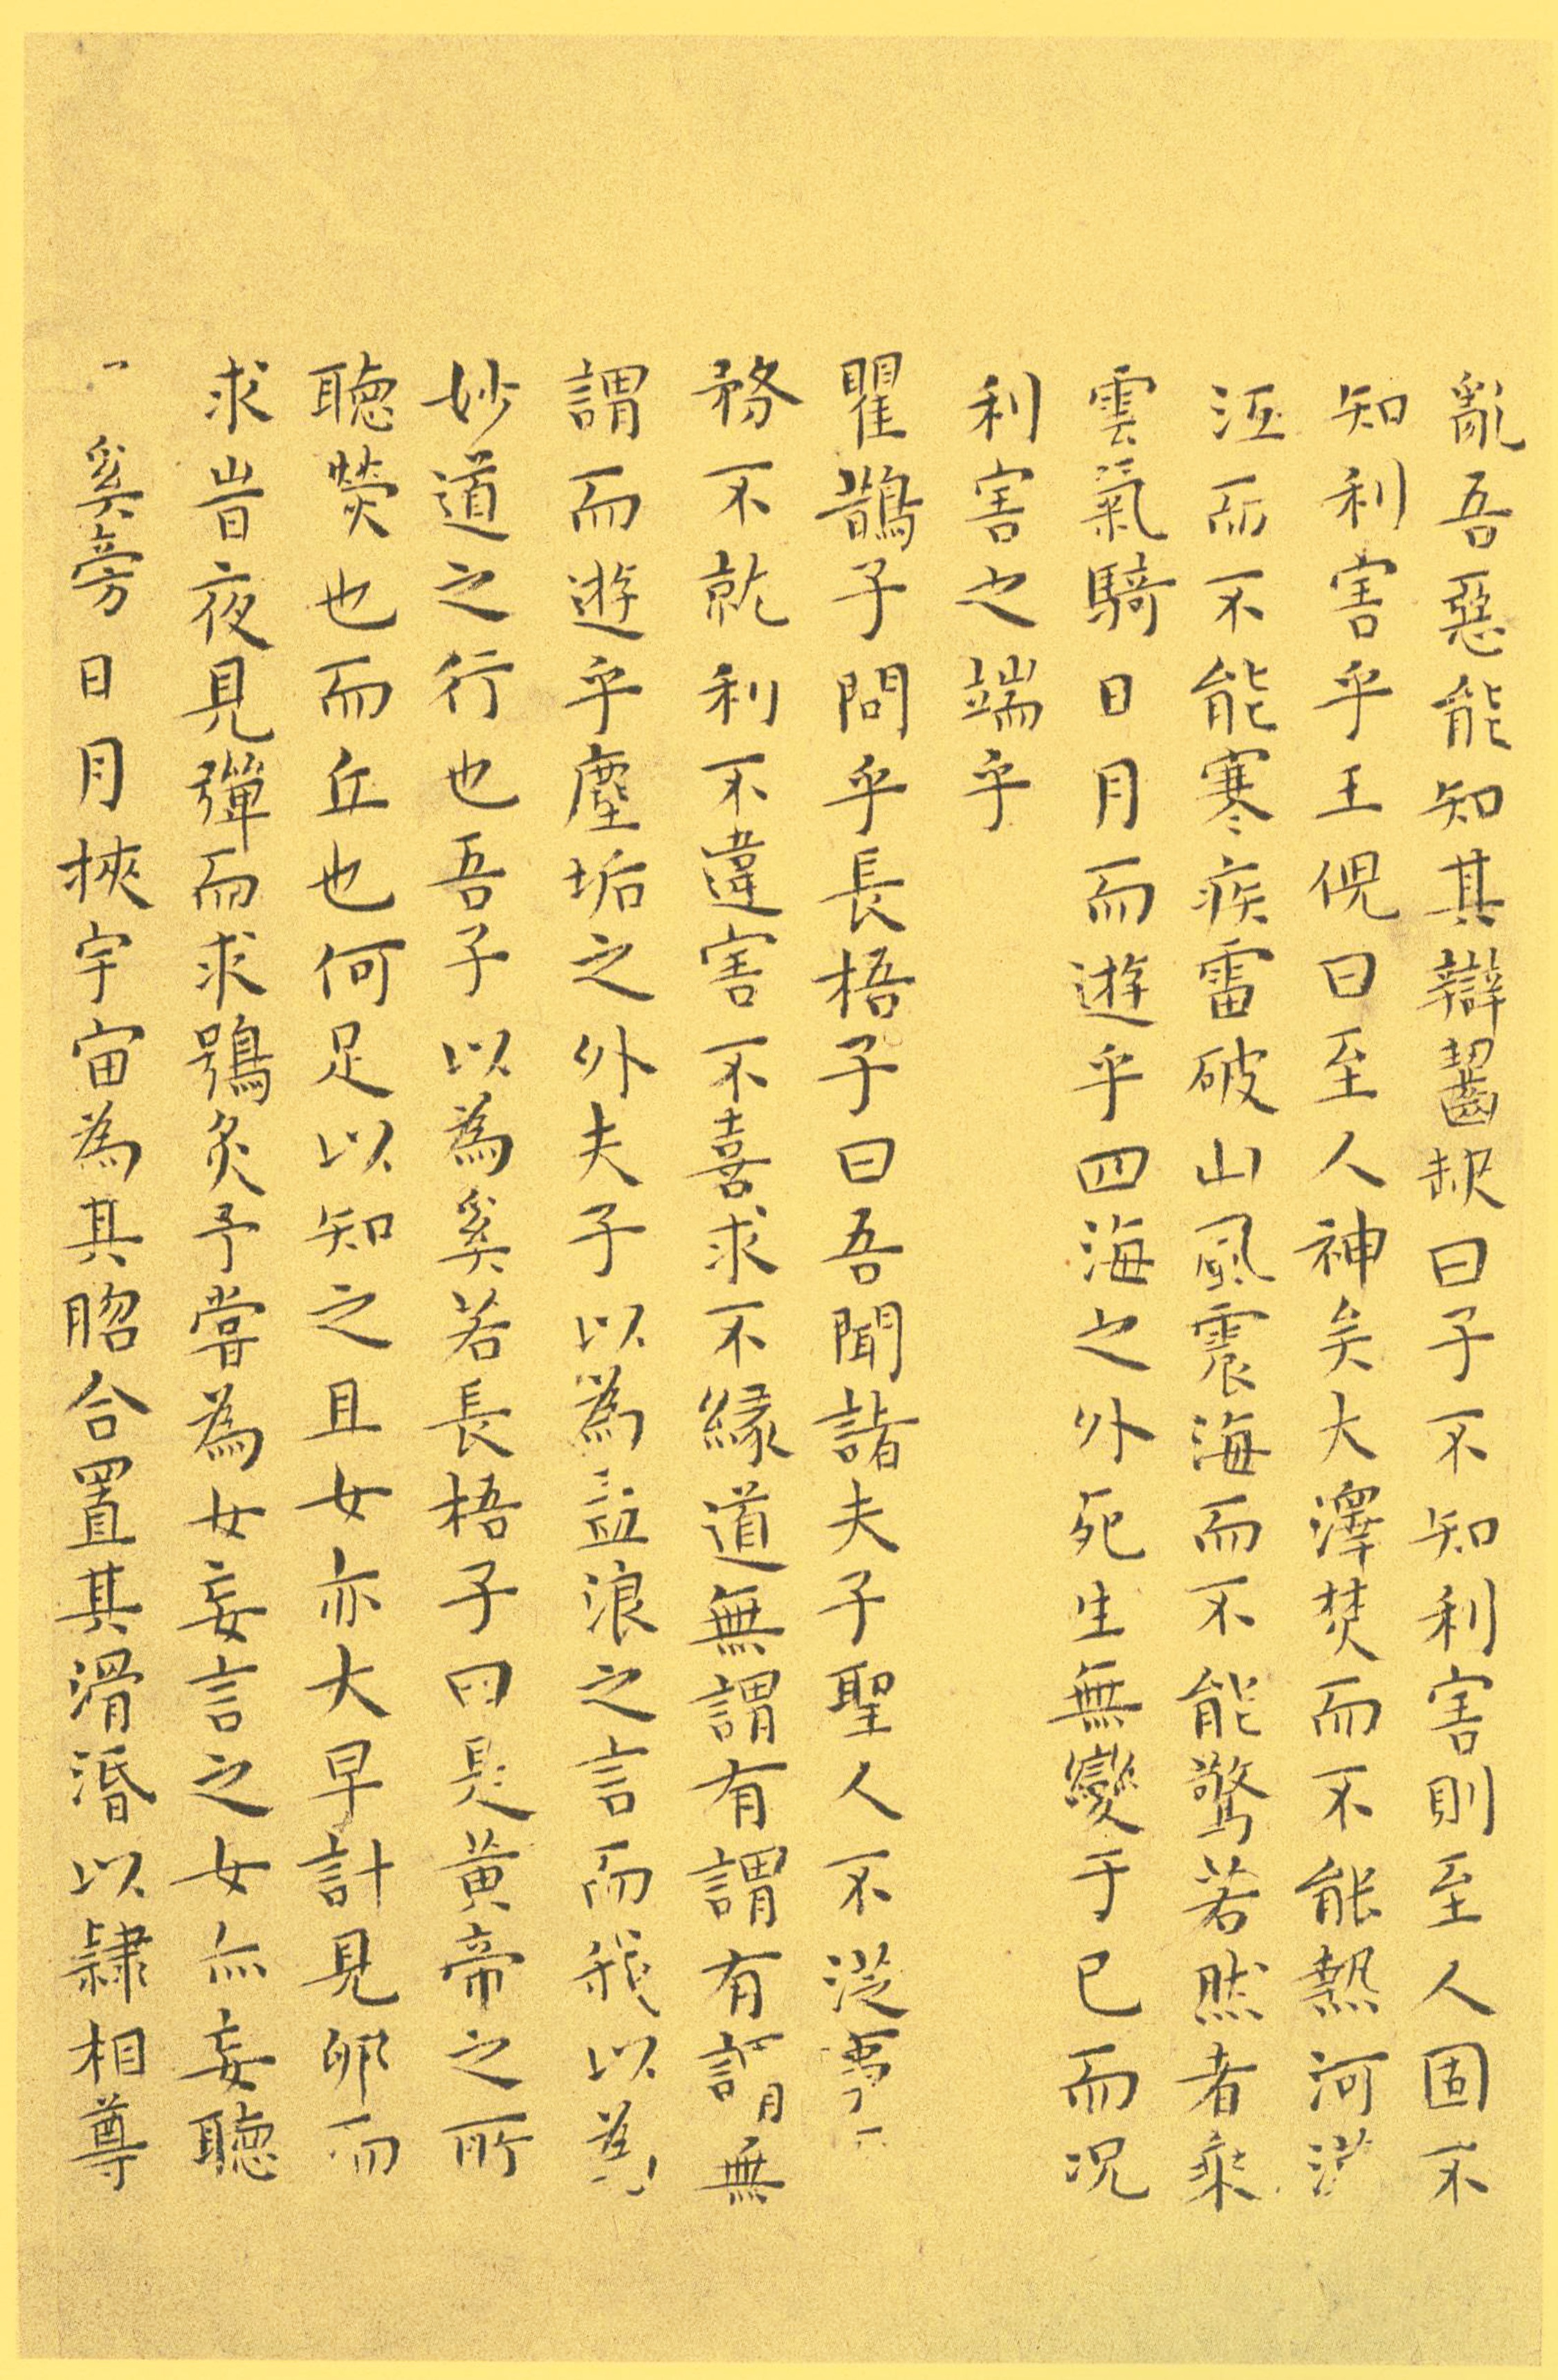 亂吾惡能知其辯齧缺曰子不知利害則至人固不
知利害乎王倪曰至人神矣大澤焚而不能熱河漢
沍而不能寒疾雷破山風震海而不能驚若然者乘
雲氣騎日月而遊乎四海之外死生無變于己而況
利害之端乎
瞿鵲子問乎長梧子曰吾聞諸夫子聖人不從事
務不就利不違害不喜求不緣道無謂有謂有謂無
謂而遊乎塵垢之外夫子以為孟浪之言而我以為
妙道之行也吾子以為奚若長梧子曰是黃帝之所
聽熒也而丘也何足以知之且女亦大早計見卵而
求旹夜見彈而求鴞炙予嘗為女妄言之女亦妄聽
奚旁日月挾宇宙為其脗合置其滑湣以隸相尊